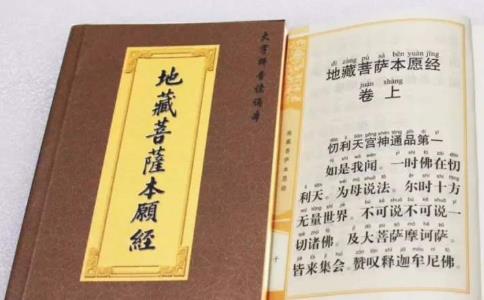 地藏菩薩本願經
大字拼音读诵本
dì zàng pú sà běn yuàn jīng
地藏菩萨本愿经
juàn shàng
卷上
忉利天宫神通品第一
如是我闻。一时佛在忉
利天。为母说法。尔时十方
无量世界。不可说不可说一
切诸佛。及大菩萨摩诃萨。
皆来集会。赞叹释迦牟尼佛。
地藏菩萨本愿经